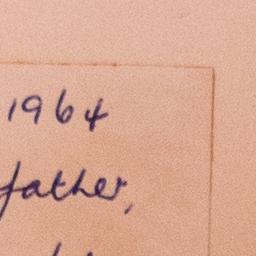 1964
father,